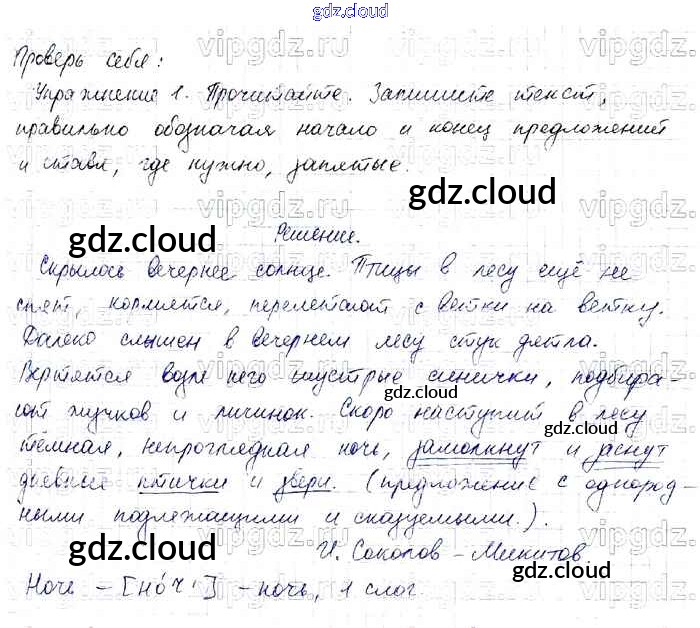 gdz.cloud
Проверь себя:
Упражнение 1. Прочитайте. Запишите текст,
правильно обозначая начало и конец предложений
и ставя, где нужно, запятые.
gdz.cloud
gdz.cloud
Решение.
Скрылось вечернее солнце. Птицы в лесу ещё не
спят, кормятся, перелетают с ветки на ветку.
Далеко слышен в вечернем лесу стук дятла.
Вертятся возле него шустрые синички, подбира-
gdz.cloud
ют жучков и личинок. Скоро наступит в лесу
gdz.cloud
тёмная, непроглядная ночь, замолкнут и заснут
дневные птички и звери. (предложение с однород-
ными подлежащими и сказуемыми.).
gdz.cloud
gdz.cloud
И. Соколов-Микитов
Ночь – [но́ч'] – ночь, 1 слог